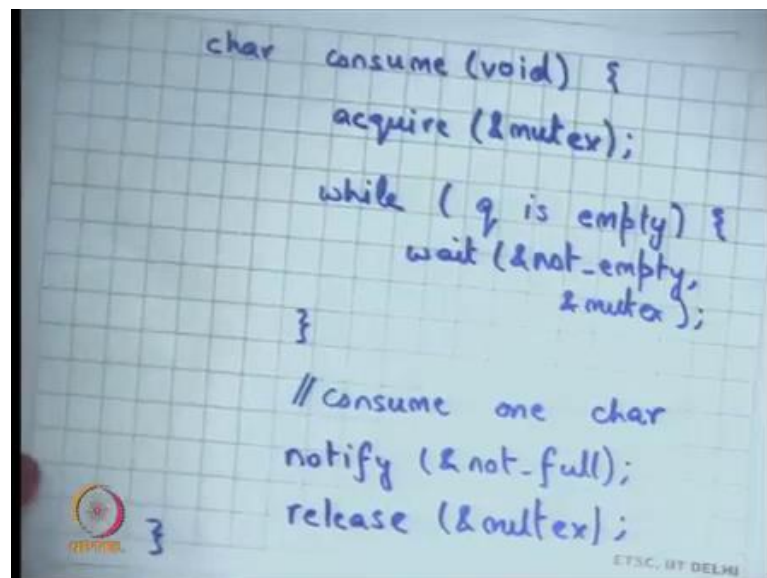 char consume (void) {
acquire (&mutex);
while ( q is empty) {
wait (&not_empty,
&mutex);
}
// consume one char
notify (&not-full);
release (&mutex);
}
ETSC, IIT DELHI